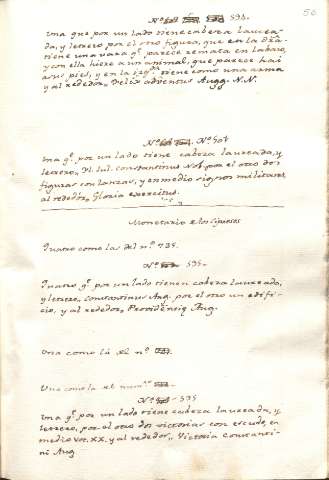 50
Nº 534.
Una que por un lado tiene cabeza laurea-
da, y letrero por el otro figura, que en la dra.
tiene una vara qe. parece remata en labaro,
y con ella hiere a un animal, que parece hai
a sus pies, y en la izqa. tiene como una arma
y al rededor, Felix adventus Augg. N.N.
Nº Nº 501
Una qe. por un lado tiene cabeza laureada, y
letrero, Fl. Iul. Constantinus por el otro dos
figuras con lanzas, y en medio signos militares
al rededor, Gloria exercitus.
Monetario
Quatro como las del nº 735.
Nº 535.
Quatro qe. por un lado tienen cabeza laureada,
y letrero, Constantinus Aug. por el otro un edifi-
cio, y al rededor, Providentiæ Aug.
Una como la del nº
Una como la del numº
Nº 535
Una qe. por un lado tiene cabeza laureada, y
letrero, por el otro dos victorias con escudo, en
medio Vot. XX. y al rededor, Victoria Constanti-
ni Aug